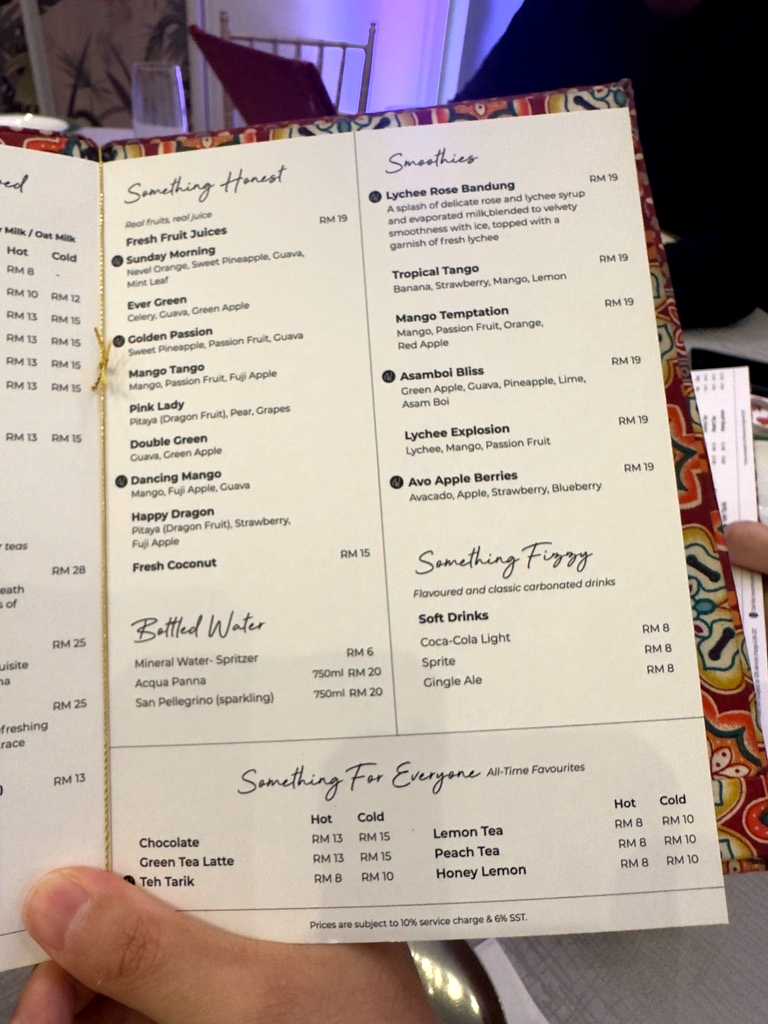 Milk / Oat Milk
Hot Cold
RM 8 -
RM 10 RM 12
RM 13 RM 15
RM 13 RM 15
RM 13 RM 15
RM 13 RM 15
RM 13 RM 15
teas
RM 28
RM 25
RM 25
RM 13
Something Honest
Real fruits, real juice
Fresh Fruit Juices RM 19
Sunday Morning
Nevel Orange, Sweet Pineapple, Guava,
Mint Leaf
Ever Green
Celery, Guava, Green Apple
Golden Passion
Sweet Pineapple, Passion Fruit, Guava
Mango Tango
Mango, Passion Fruit, Fuji Apple
Pink Lady
Pitaya (Dragon Fruit), Pear, Grapes
Double Green
Guava, Green Apple
Dancing Mango
Mango, Fuji Apple, Guava
Happy Dragon
Pitaya (Dragon Fruit), Strawberry,
Fuji Apple
Fresh Coconut RM 15
Bottled Water
Mineral Water- Spritzer RM 6
Acqua Panna 750ml RM 20
San Pellegrino (sparkling) 750ml RM 20
Smoothies
Lychee Rose Bandung RM 19
A splash of delicate rose and lychee syrup
and evaporated milk,blended to velvety
smoothness with ice, topped with a
garnish of fresh lychee
Tropical Tango RM 19
Banana, Strawberry, Mango, Lemon
Mango Temptation RM 19
Mango, Passion Fruit, Orange,
Red Apple
Asamboi Bliss RM 19
Green Apple, Guava, Pineapple, Lime,
Asam Boi
Lychee Explosion RM 19
Lychee, Mango, Passion Fruit
Avo Apple Berries RM 19
Avacado, Apple, Strawberry, Blueberry
Something Fizzy
Flavoured and classic carbonated drinks
Soft Drinks
Coca-Cola Light RM 8
Sprite RM 8
Gingle Ale RM 8
Something For Everyone All-Time Favourites
Hot Cold
Chocolate RM 13 RM 15
Green Tea Latte RM 13 RM 15
Teh Tarik RM 8 RM 10
Hot Cold
Lemon Tea RM 8 RM 10
Peach Tea RM 8 RM 10
Honey Lemon RM 8 RM 10
Prices are subject to 10% service charge & 6% SST.